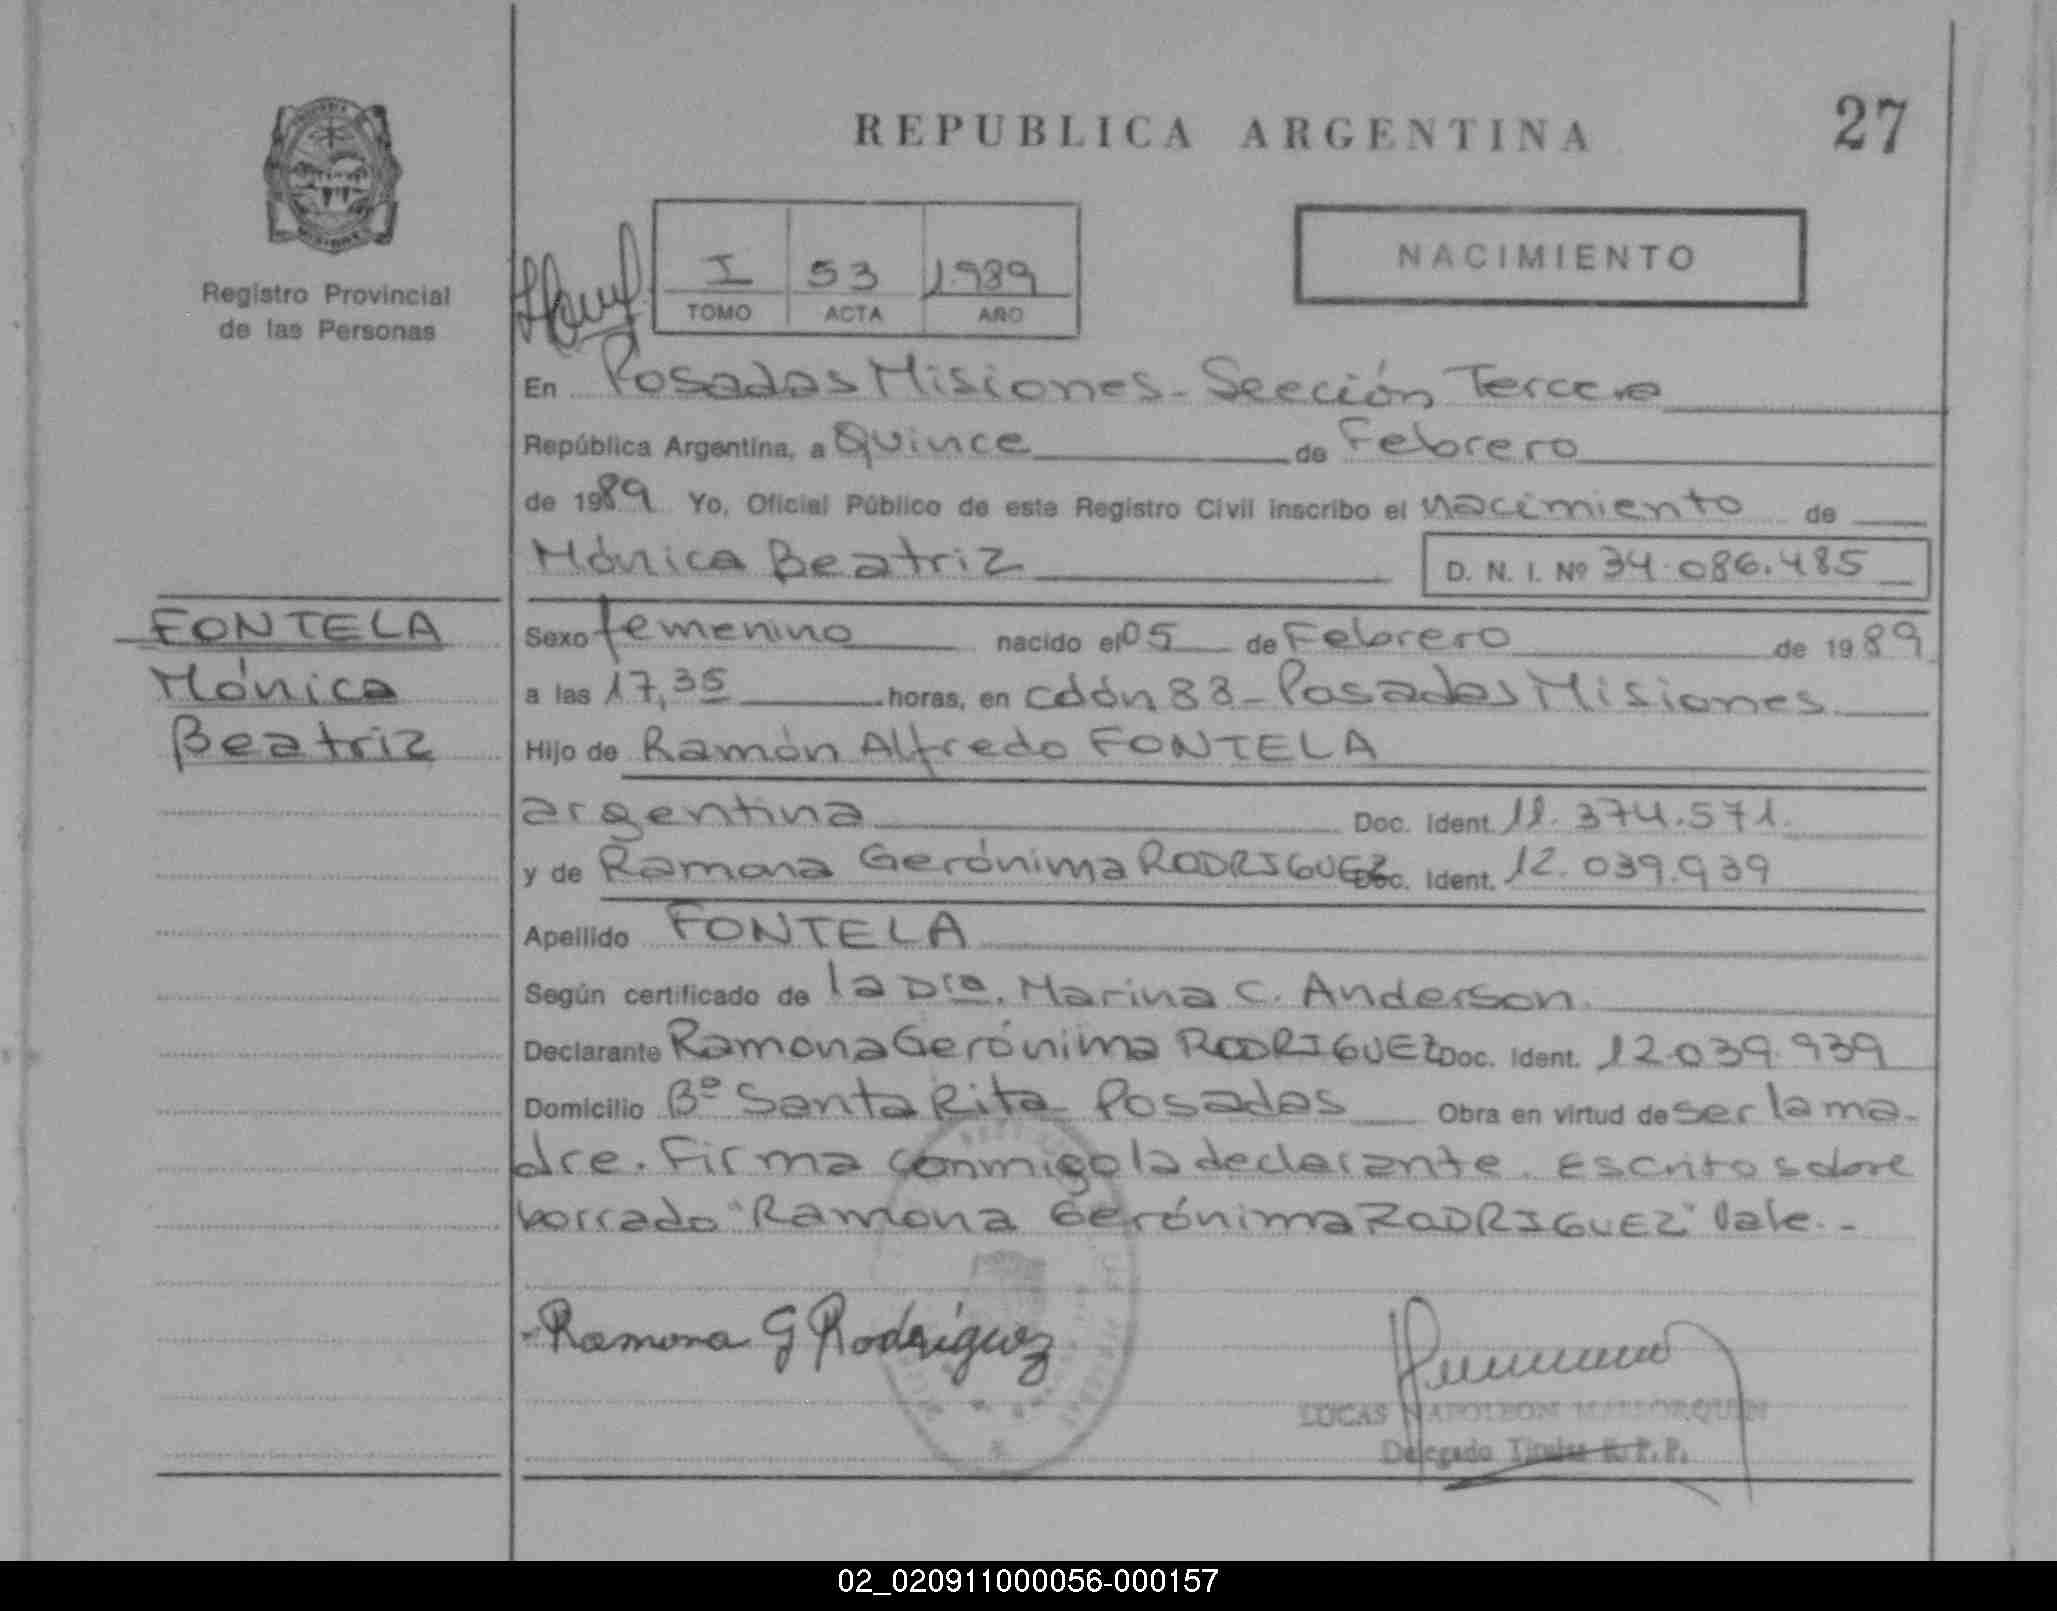 REPUBLICA ARGENTINA
27
Registro Provincial
de las Personas
I 53 1.989
TOMO ACTA AÑO
NACIMIENTO
En Posadas Misiones - Sección Tercera
República Argentina, a Quince de Febrero
de 1989 Yo, Oficial Público de este Registro Civil inscribo el nacimiento de
Mónica Beatriz D. N. I. Nº 34.086.485
FONTELA
Mónica
Beatriz
Sexo femenino nacido el 05 de Febrero de 1989
a las 17,35 horas, en cdón 88 - Posadas Misiones
Hijo de Ramón Alfredo FONTELA
argentina Doc. Ident. 11.374.571.
y de Ramona Gerónima RODRIGUEZ Doc. Ident. 12.039.939
Apellido FONTELA
Según certificado de la Dra. Marina C. Anderson
Declarante Ramona Gerónima RODRIGUEZ Doc. Ident. 12.039.939
Domicilio Bº Santa Rita Posadas Obra en virtud de ser la ma-
dre. Firma conmigo la declarante. Escrito sobre
borrado "Ramona Gerónima RODRIGUEZ" Vale.-
Ramona G Rodríguez
LUCAS NAPOLEON MALLORQUIN
Delegado Titular R. P. P.
02_020911000056-000157